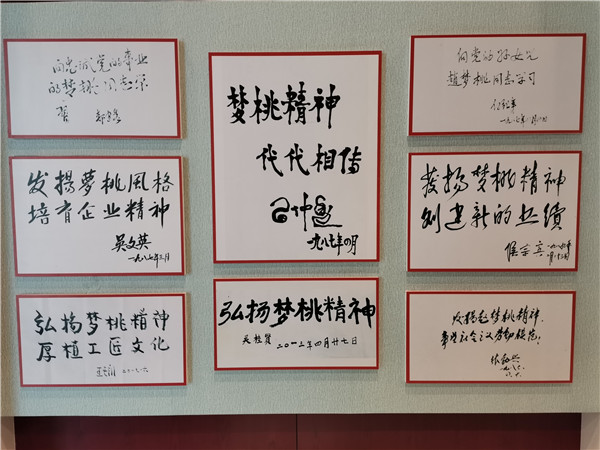 向忠诚党的事业
的梦桃同志学
习
发揚夢桃風格
培育企业精神
吴文英
一九八七年三月
弘扬梦桃精神
厚植工匠文化
梦桃精神
代代相传
一九八七年四月
弘扬梦桃精神
吴桂贤 二〇一二年四月廿七日
向党的好女儿
赵梦桃同志学习
發扬梦桃精神
创建新的业绩
侯宗宾
发扬赵梦桃精神，
社会主义劳动模范。